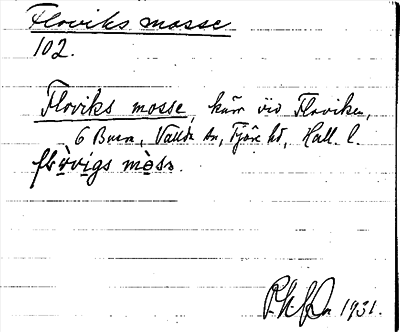 Floviks mosse
102.
Floviks mosse, kärr vid Floviken,
6 Bura, Vallda sn, Fjäre hd, Hall. l.
flòvigs mòsə.
1931.